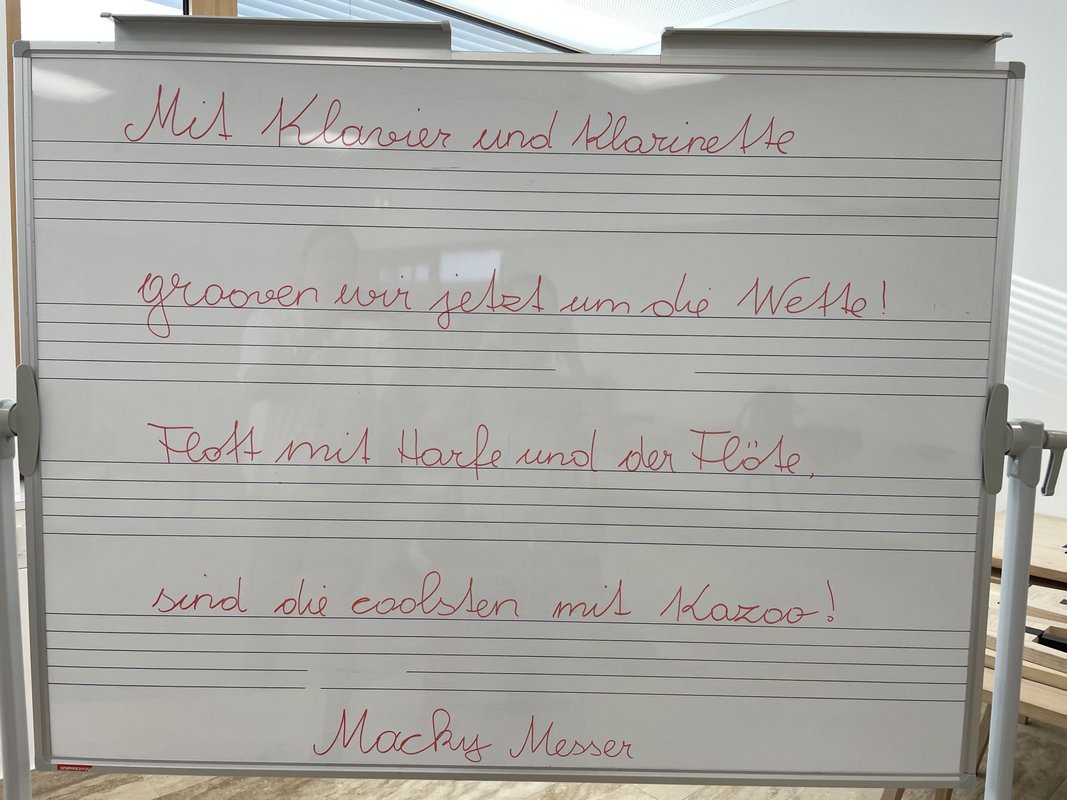 Mit Klavier und Klarinette
grooven wir jetzt um die Wette!
Flott mit Harfe und der Flöte,
sind die coolsten mit Kazoo!
Macky Messer